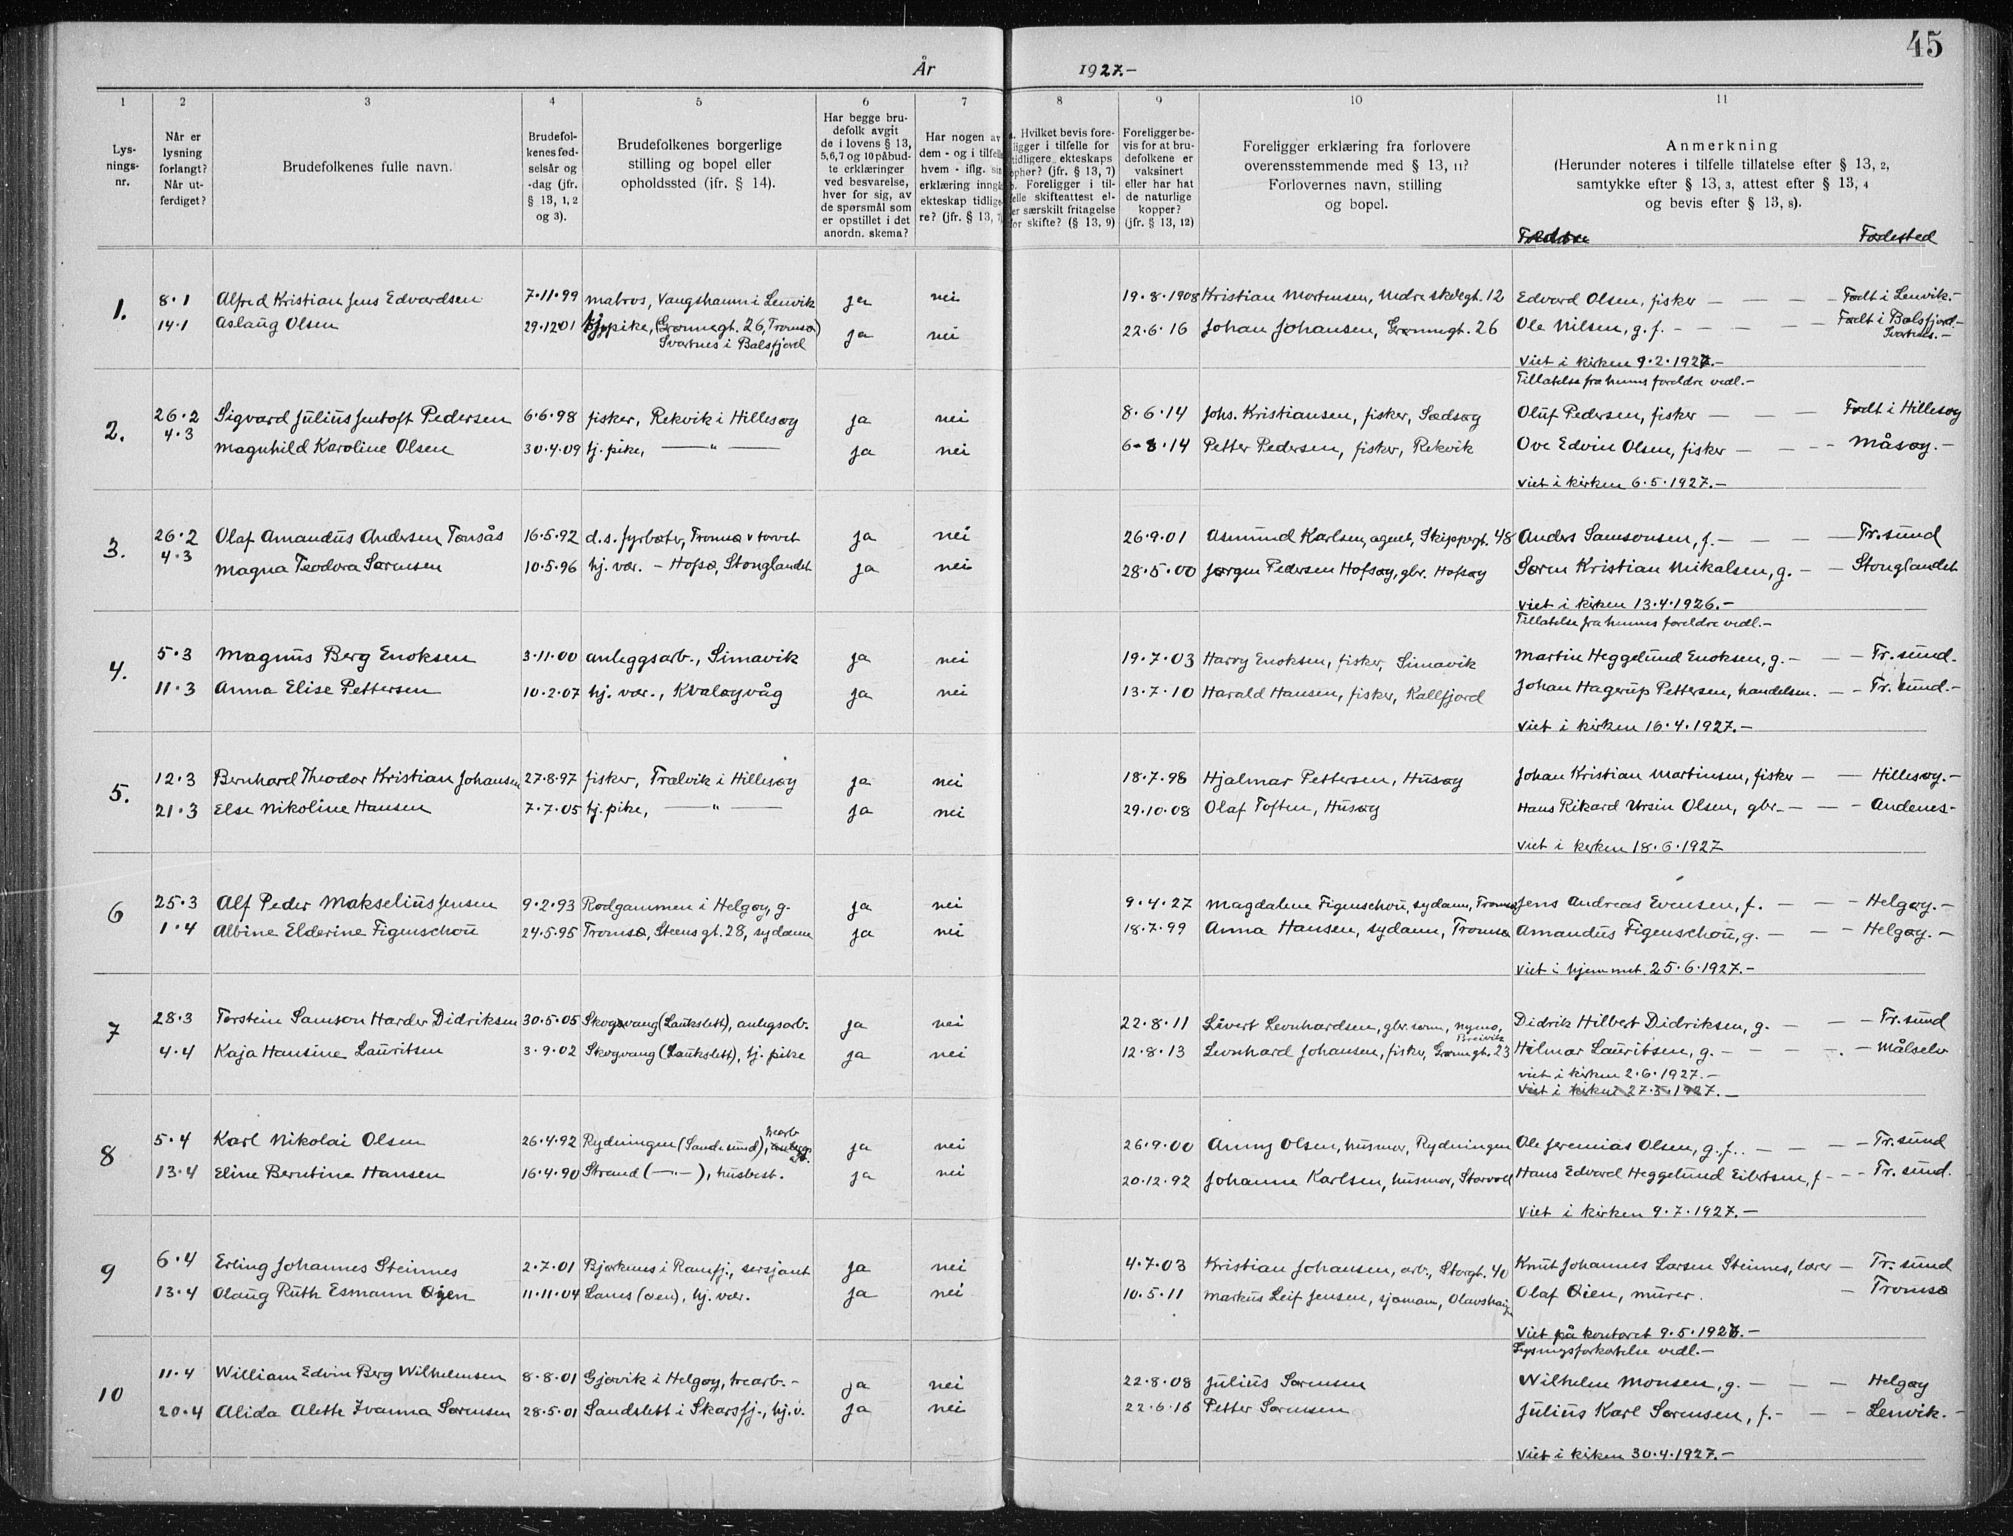 45
År 1927.-
1 2 3 4 5 6 7 8 9 10 11
Lys-
nings-
nr.
Når er
lysning
forlangt?
Når ut-
ferdiget?
Brudefolkenes fulle navn.
Brudefol-
kenes fød-
selsår og
-dag (jfr.
§ 13, 1, 2
og 3).
Brudefolkenes borgerlige
stilling og bopel eller
opholdssted (ifr. § 14).
Har begge bru-
defolk avgit
de i lovens § 13,
5,6,7 og 10 påbud-
te erklæringer
ved besvarelse,
hver for sig, av
de spørsmål som
er opstillet i det
anordn. skema?
Har nogen av
dem - og i tilfelle
hvem - iflg. sin
erklæring inngå
ekteskap tidlige-
re? (jfr. § 13, 7
a. Hvilket bevis fore-
ligger i tilfelle for
tidligere ekteskaps
ophør? (jfr. § 13, 7)
b. Foreligger i til-
felle skifteattest el-
er særskilt fritagelse
for skifte? (§ 13, 9)
Foreligger be-
vis for at bru-
defolkene er
vaksinert
eller har hat
de naturlige
kopper?
(jfr. § 13, 12)
Foreligger erklæring fra forlovere
overensstemmende med § 13, 11?
Forlovernes navn, stilling
og bopel.
Anmerkning
(Herunder noteres i tilfelle tillatelse efter § 13, 2,
samtykke efter § 13, 3, attest efter § 13, 4
og bevis efter § 13, 8).
Fødested
1. 8.1 Alfred Kristian Jens Edvardsen 7.11.99 matros, Vangshamn i Lenvik ja nei 19.8.1908 Kristian Mortensen, Nedre skolegt. 12 Edvard Olsen, fisker - - - Født i Lenvik.-
14.1 Aslaug Olsen 29.12.01 hj.pike, (Grønnegt. 26, Tromsø) ja nei 22.6.16 Johan Johansen, Grønnegt. 26 Ole Nilsen, g.f. - - - - Født i Balsfjord.-
Svartnes i Balsfjord Svartnes.-
Viet i kirken 9.2.1927.-
Tillatelse fra hennes foreldre vedl.-
2. 26.2 Sigvard Julius Jentoft Pedersen 6.6.98 fisker, Rekvik i Hillesøy ja nei 8.6.14 Johs. Kristiansen, fisker, Sødsøy Oluf Pedersen, fisker - - - Født i Hillesøy
4.3 Magnhild Karoline Olsen 30.4.09 hj. pike, —"— ja nei 6-8.14 Petter Pedersen, fisker, Rekvik Ove Edvin Olsen, fisker - - - Måsøy.-
Viet i kirken 6.5.1927.-
3. 26.2 Olaf Amandus Andersen Tønsås 16.5.92 d.s. fyrbøter, Tromsø v torvet ja nei 26.9.01 Asmund Karlsen, agent, Skippergt. 48 Anders Samsonsen, f. - - - Tr.sund
4.3 Magna Teodora Sørensen 10.5.96 hj. vær. - Hofsø, Stonglandet ja nei 28.5.00 Jørgen Pedersen Hofsøy, gbr. Hofsøy Søren Kristian Mikalsen, g. - - Stonglandet
Viet i kirken 13.4.1926.-
Tillatelse fra hennes foreldre vedl.-
4. 5.3 Magnus Berg Enoksen 3.11.00 anleggsarb., Simavik ja nei 19.7.03 Harry Enoksen, fisker, Simavik Martin Heggelund Enoksen, g. - - - Tr. sund.
11.3 Anna Elise Pettersen 10.2.07 hj. vær., Kvaløyvåg ja nei 13.7.10 Harald Hansen, fisker, Kallfjord Johan Hagerup Pettersen, handelsm. - - Tr. sund.-
Viet i kirken 16.4.1927.-
5. 12.3 Bernhard Theodor Kristian Johansen 27.8.97 fisker, Trælvik i Hillesøy ja nei 18.7.98 Hjalmar Pettersen, Husøy Johan Kristian Martinsen, fisker - - Hillesøy.-
21.3 Else Nikoline Hansen 7.7.05 hj. pike, —"— ja nei 29.10.08 Olaf Toften, Husøy Hans Rikard Ursin Olsen, gbr. - - - Andenes-
Viet i kirken 18.6.1927
6 25.3 Alf Peder Makselius Jensen 9.2.93 Rødgammen i Helgøy, g. ja nei 9.4.27 Magdalene Figenschou, sydam, Tromsø Jens Andreas Evensen, f. - - - Helgøy.-
1.4 Albine Elderine Figenschou 24.5.95 Tromsø, Steens gt. 28, sydame ja nei 18.7.99 Anna Hansen, sydam, Tromsø Amandus Figenschou, g. - - - Helgøy.-
Viet i hjemmet 25.6.1927.-
7 28.3 Torstein Samson Harder Didriksen 30.5.05 Skogvang (Laukslett), anlegsarb. ja nei 22.8.11 Sivert Leonhardsen, gbr. sønn, Nymo, Didrik Hilbert Didriksen, g. - - - Tr. sund
Breivik
4.4 Kaja Hansine Lauritsen 3.9.02 Skogvang (Laukslett), hj. pike ja nei 12.8.13 Leonhard Johansen, fisker, Grønnegt. 23 Hilmar Lauritsen, g. - - - - Målselv
viet i kirken 2.6.1927.-
Viet i kirken 27.5.1927.-
8 5.4 Karl Nikolai Olsen 26.4.92 Rydningen (Sandesund), trearb. ja nei 26.9.00 Anny Olsen, husmor, Rydningen Ole Jeremias Olsen, g.f. - - - Tr. sund
13.4 Eline Berntine Hansen 16.4.90 Strand (-"-), husbest. ja nei 20.12.92 Johanne Karlsen, husmor, Storvoll Hans Edvard Heggelund Eilertsen, f - - Tr. sund.
Viet i kirken 9.7.1927.-
9 6.4 Erling Johannes Steinnes 2.7.01 Bjørknes i Ramfj., sersjant ja nei 4.7.03 Kristian Johansen, arb., Storgt. 40 Knut Johannes Larsen Steinnes, lærer - Tr. sund
13.4 Olaug Ruth Esmann Øien 11.11.04 Lanes (øen), hj. vær. ja nei 10.5.11 Markus Leif Jensen, sjømann, Olavshaug Olaf Øien, murer. - Tromsø
Viet på kontoret 9.5.1927.-
Lysningsforkortelse vedl.-
10 11.4 William Edvin Berg Wilhelmsen 8.8.01 Gjøvik i Helgøy, trearb.- ja nei 22.8.08 Julius Sørensen Wilhelm Monsen, g. - - - Helgøy
20.4 Alida Alette Ivanna Sørensen 28.5.01 Sandslett i Skarsfj., hj.v. ja nei 22.6.16 Petter Sørensen Julius Karl Sørensen, f. - - - Lenvik.-
Viet i kirken 30.4.1927.-